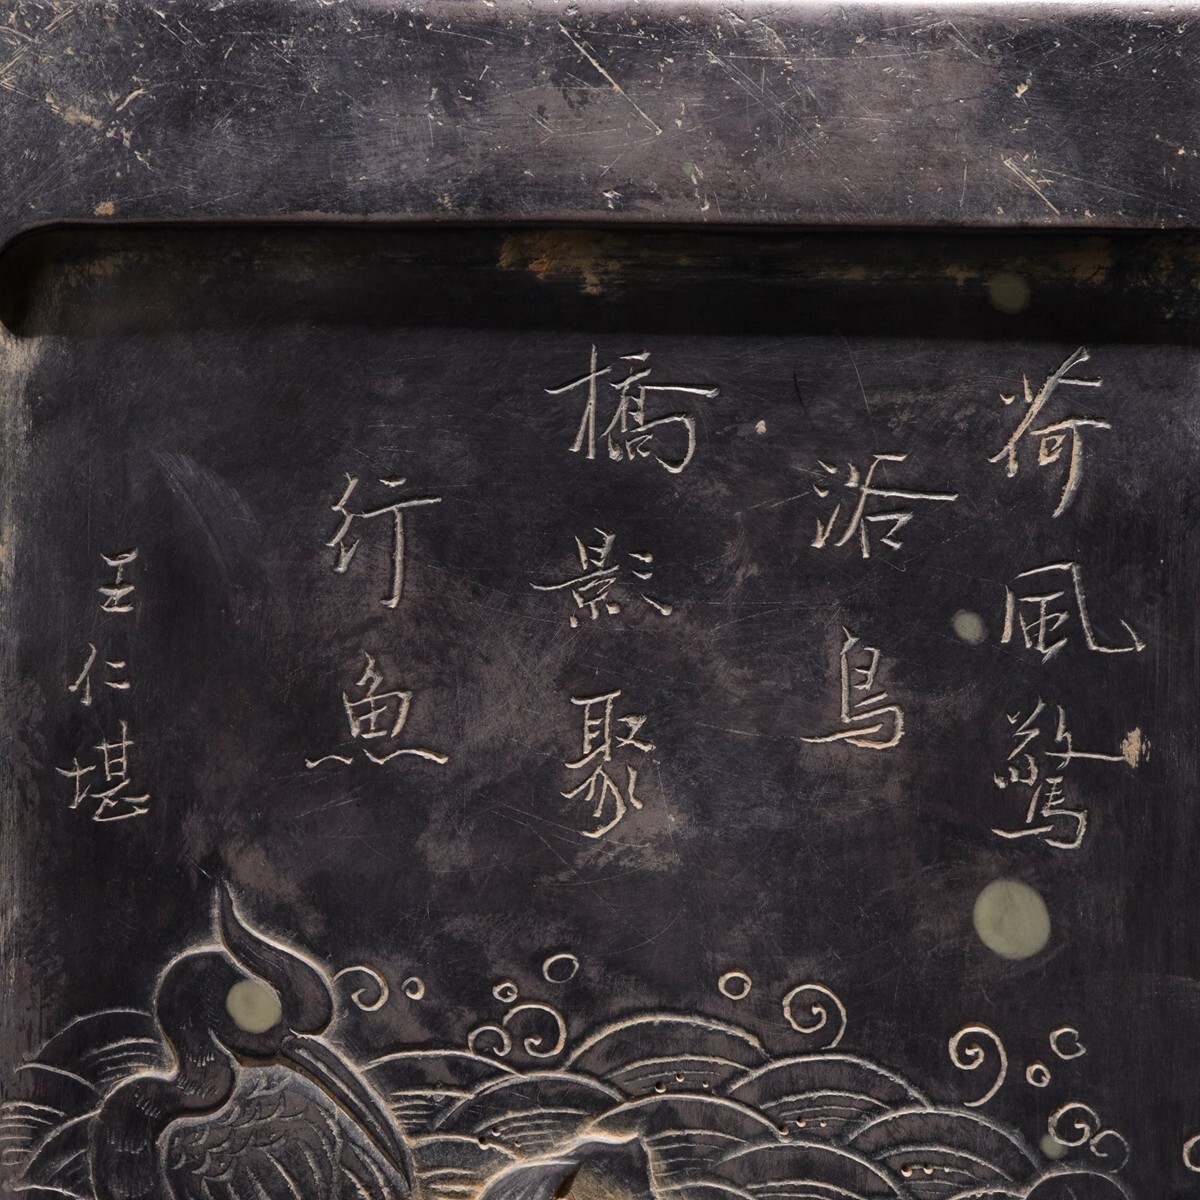 荷風驚
浴鳥
橋影聚
行魚
王仁堪